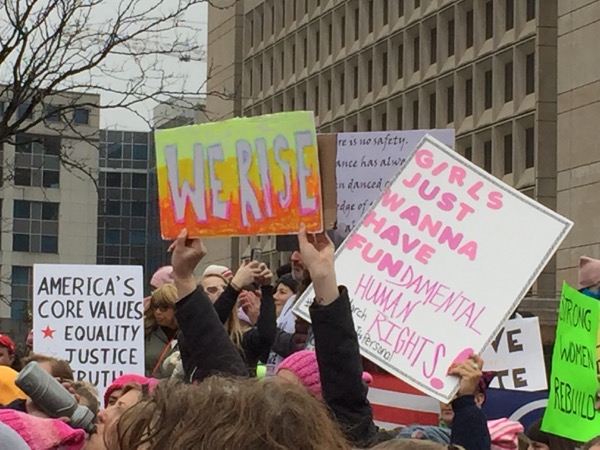 WE RISE
re is no safety.
ance has alwa
n danced
edge of
GIRLS
JUST
WANNA
HAVE
FUNDAMENTAL
HUMAN
RIGHTS!
AMERICA'S
CORE VALUES
EQUALITY
JUSTICE
TRUTH
VE
TE
STRONG
WOMEN
REBUILD